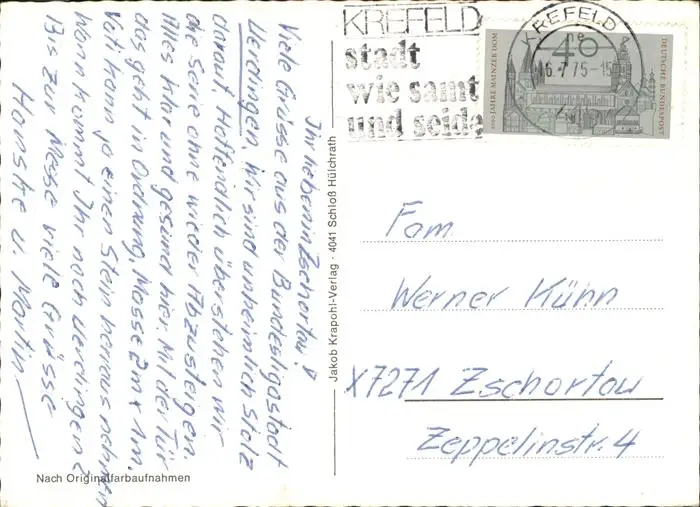 Ihr lieben in Zschortau!
Viele Grüsse aus der Bundesligastadt
Uerdingen. Wir sind unheimlich stolz
darauf. Hoffendlich überstehen wir
die Seine ohne wieder Abzusteigen.
Alles klar und gesund hier. Mit der Tür
das geht in Ordnung, Masse 2m x 1m.
Vati kann ja einen Stein heraus nehmen
Wann kommt Ihr nach Uerdingen?
Bis zur Messe viele Grüsse
Hanske u. Martin
Nach Originalfarbaufnahmen
Jakob Krapohl-Verlag · 4041 Schloß Hülchrath
KREFELD
stadt
wie samt
und seide
KREFELD
16.-7.75-15
40
1000 JAHRE MAINZER DOM
DEUTSCHE BUNDESPOST
Fam
Werner Kühn
X7271 Zschortau
Zeppelinstr. 4